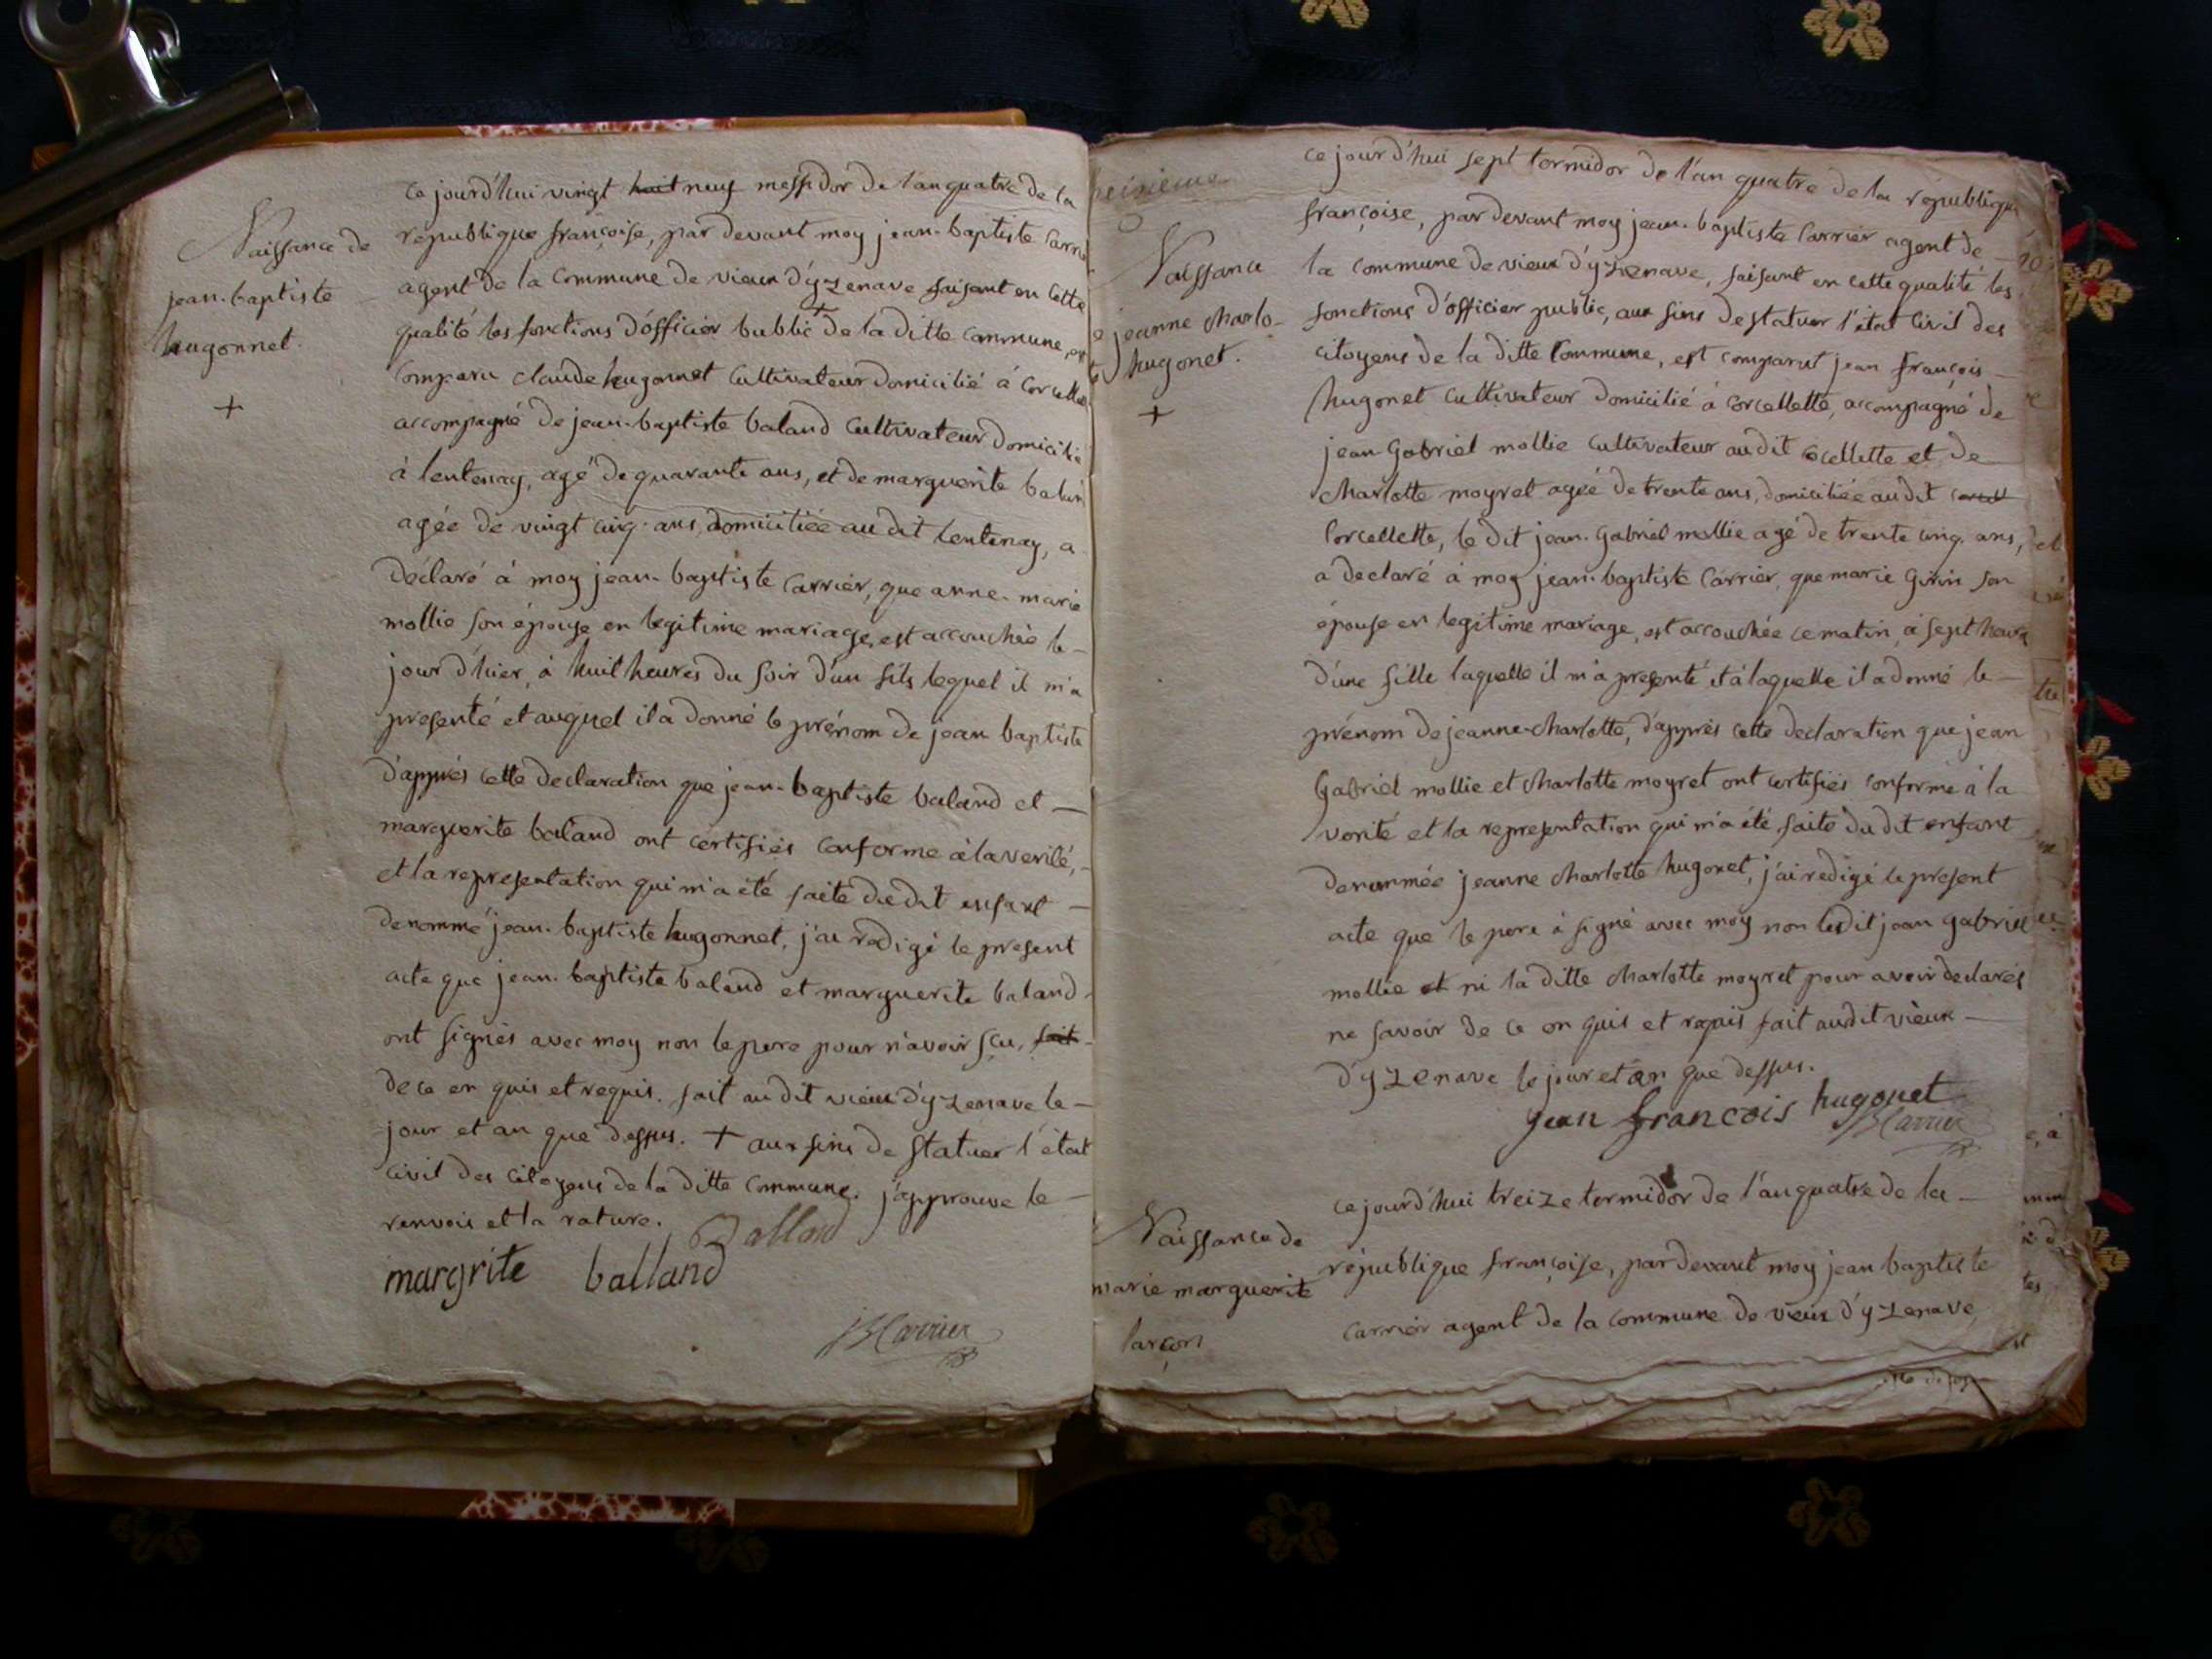 Naissance de
jean-baptiste
hugonnet.
+
ce jourd'hui vingt huit neuf messidor de l'an quatre de la
république françoise, par devant moy jean-baptiste Carrier
agent de la Commune de vieux d'yzenave faisant en cette
qualité les fonctions d'officier bublic + de la ditte commune, est
comparu claude hugonnet Cultivateur domicilié à corcellette
accompagné de jean-baptiste baland Cultivateur domicilié
à lentenay, agé de quarante ans, et de marguerite baland
agée de vingt cinq ans, domiciliée au dit lentenay, a
déclaré à moy jean-baptiste Carrier, que anne-marie
mollie son épouse en legitime mariage, est accouchée le
jour d'hier, à huit heures du soir d'un fils lequel il m'a
presenté et auquel il a donné le prénom de jean baptiste
d'apprés cette declaration que jean-baptiste baland et
marguerite baland ont certifiés conforme à la verité,
et la representation qui m'a été faite du dit enfant
denommé jean-baptiste hugonnet, j'ai redigé le present
acte que jean-baptiste baland et marguerite baland
ont signés avec moy non le pere pour n'avoir sçu, fait
de ce en quis et requis. fait au dit vieux d'yzenave le
jour et an que dessus. + aux fins de statuer l'état
civil des citoyens de la ditte commune. j'approuve le
renvois et la rature.
Balland
margrite balland
JB Carrier
Naissance
jeanne charlo-
hugonet.
+
ce jourd'hui sept termidor de l'an quatre de la république
françoise, par devant moy jean-baptiste Carrier agent de
la commune de vieux d'yzenave, faisant en cette qualité les
fonctions d'officier public, aux fins de statuer l'état civil des
citoyens de la ditte Commune, est comparut jean françois
hugonet cultivateur domicilié à corcellette, accompagné de
jean Gabriel mollie cultivateur au dit cocellette et de
charlotte moyret agée de trente ans, domiciliée au dit
Corcellette, le dit jean-Gabriel mollie agé de trente cinq ans,
a declaré à moy jean-baptiste Carrier, que marie Girin son
épouse en legitime mariage, est accouchée ce matin à sept heures
d'une fille laquelle il m'a presenté et à laquelle il a donné le
prénom de jeanne-charlotte, d'apprés cette declaration que jean
Gabriel mollie et charlotte moyret ont certifiés conforme à la
verité et la representation qui m'a été faite du dit enfant
denommée jeanne charlotte hugonet, j'ai redigé le present
acte que le pere à signé avec moy non ledit jean gabriel
mollie et ni la ditte charlotte moyret pour avoir declarés
ne savoir de ce en quis et requis fait au dit vieux
d'yzenave le jour et an que dessus.
jean francois hugonet
JB Carrier
Naissance de
marie marguerite
larçon
ce jourd'hui treize termidor de l'an quatre de la
république françoise, par devant moy jean baptiste
Carrier agent de la commune de vieux d'yzenave